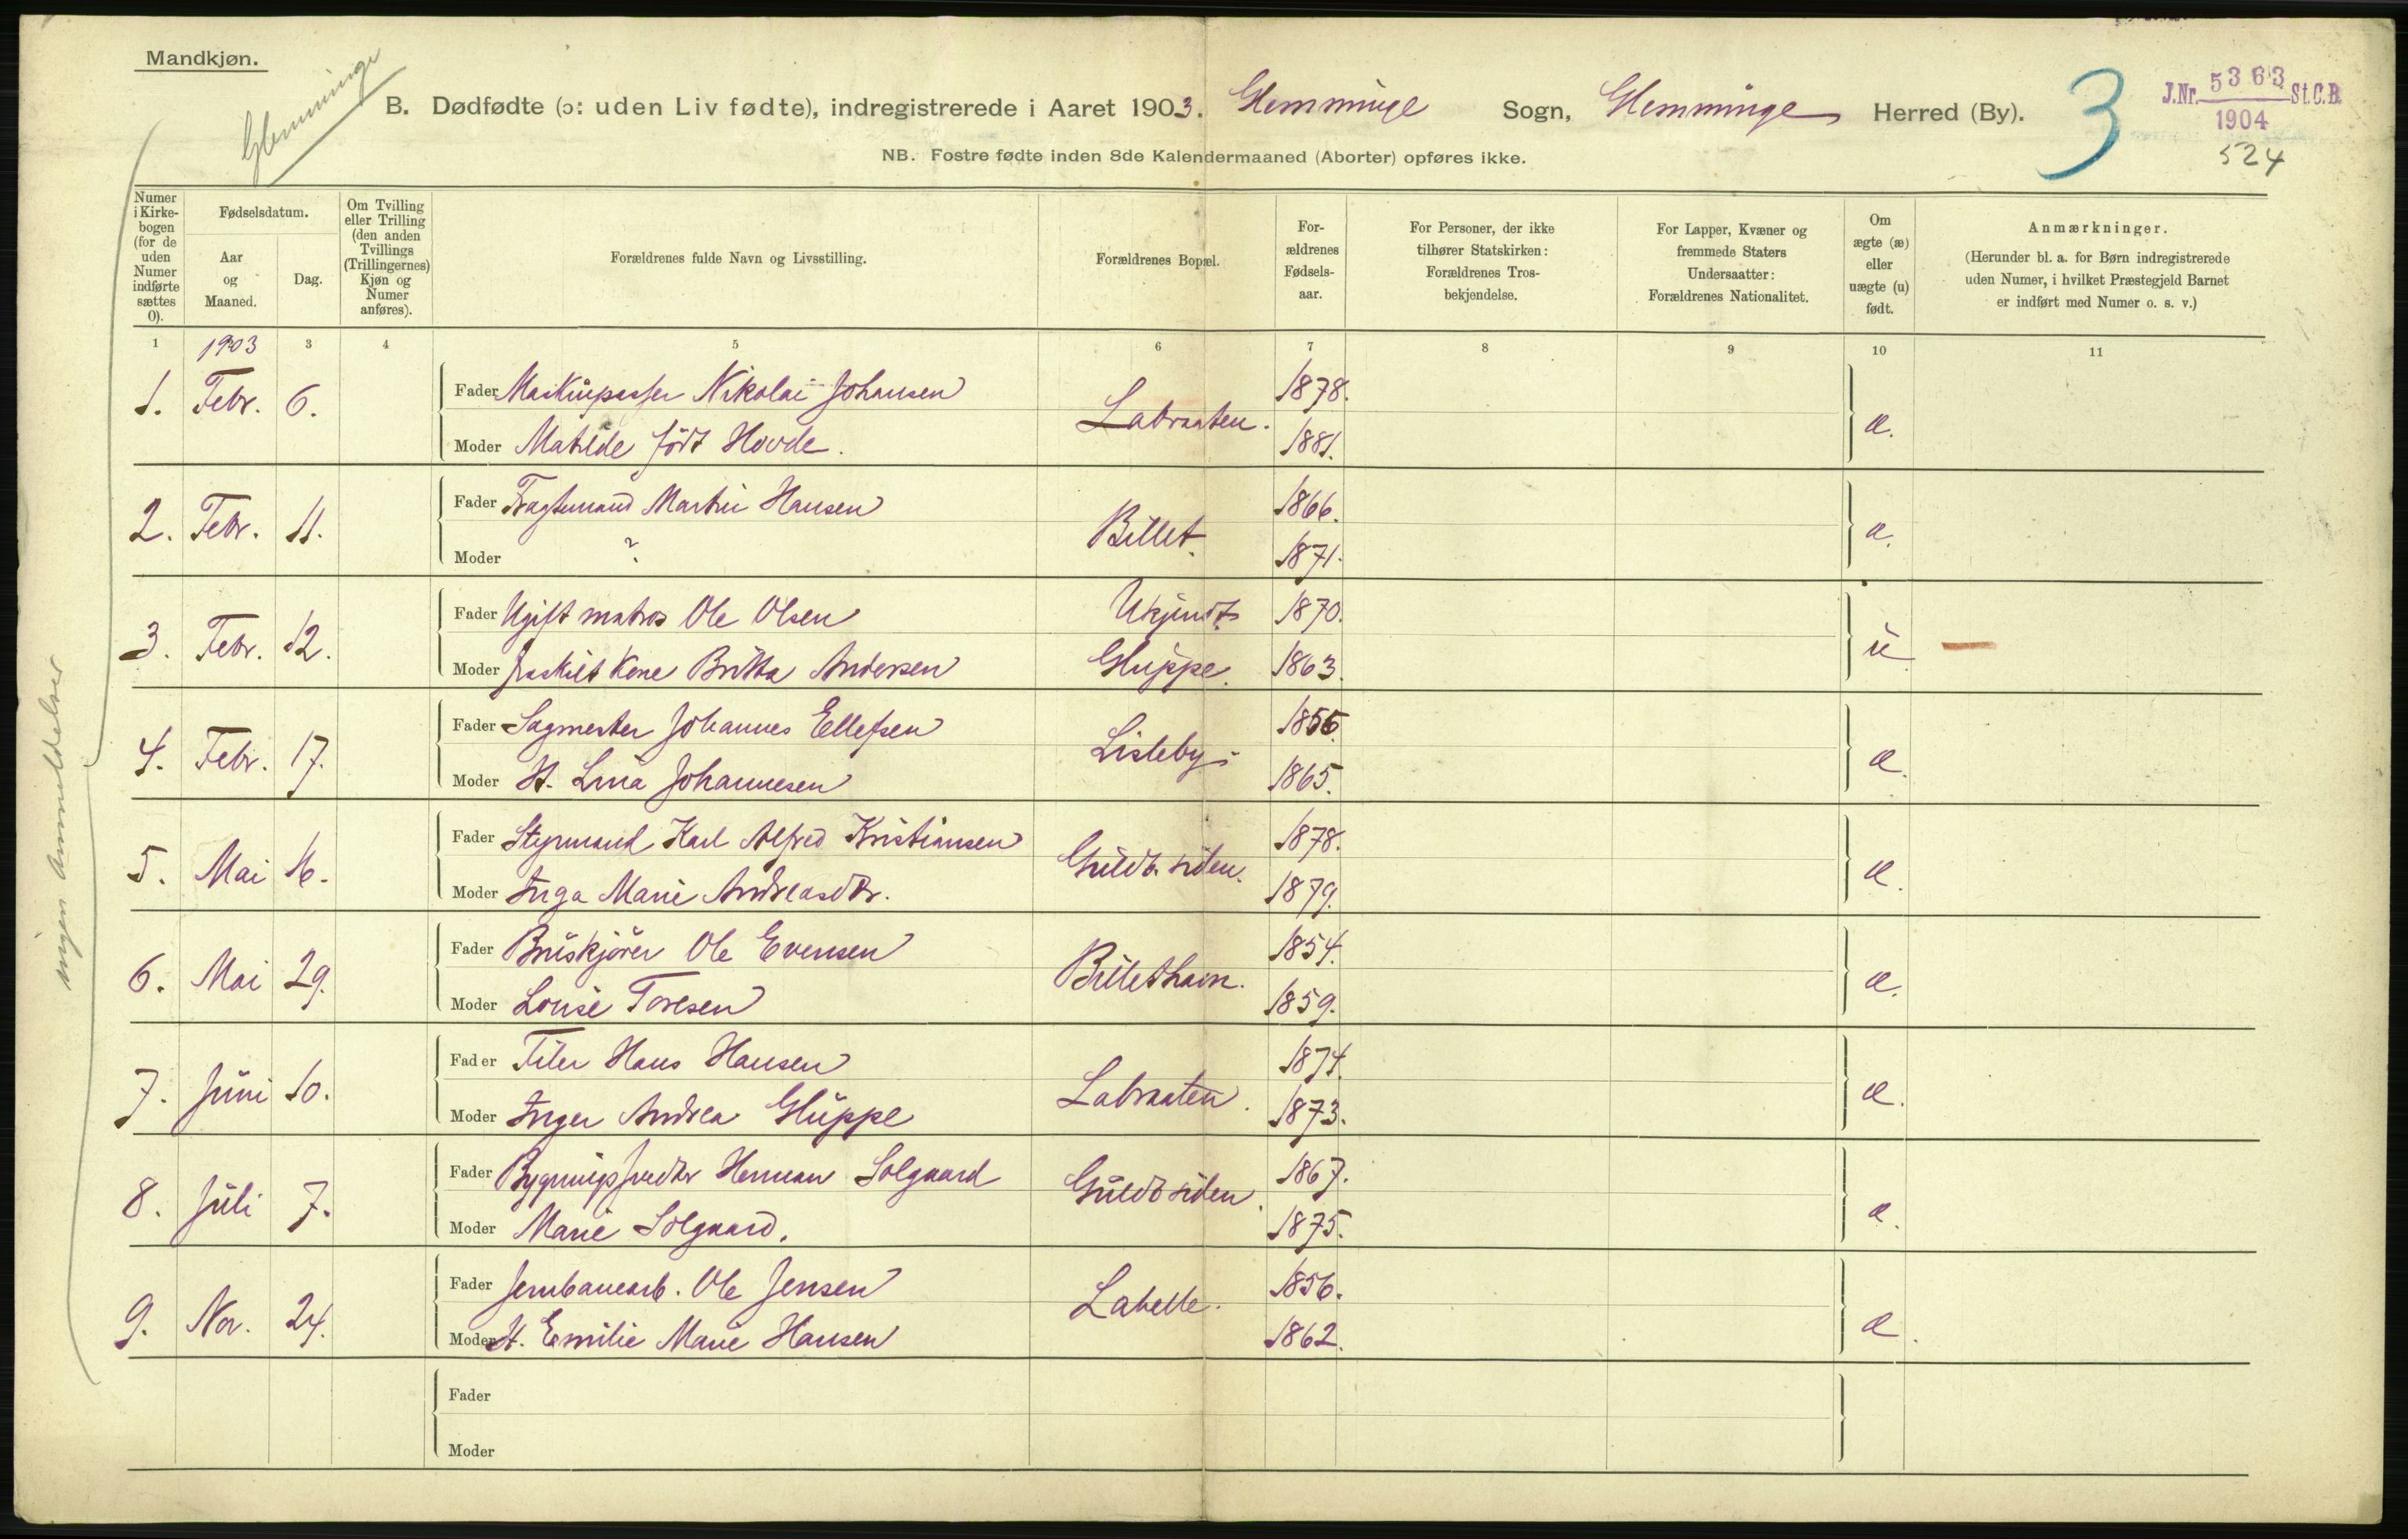 Mandkjøn.
Glemminge
B. Dødfødte (ɔ: uden Liv fødte), indregistrerede i Aaret 1903. Glemminge Sogn, Glemminge Herred (By).
3
J.Nr. 5363 St.C.B.
1904
524
NB. Fostre fødte inden 8de Kalendermaaned (Aborter) opføres ikke.
Numer i Kirkebogen (for de uden Numer indførte sættes 0).
Fødselsdatum.
Aar og Maaned.
Dag.
Om Tvilling eller Trilling (den anden Tvillings (Trillingernes) Kjøn og Numer anføres).
Forældrenes fulde Navn og Livsstilling.
Forældrenes Bopæl.
Forældrenes Fødselsaar.
For Personer, der ikke tilhører Statskirken: Forældrenes Trosbekjendelse.
For Lapper, Kvæner og fremmede Staters Undersaatter: Forældrenes Nationalitet.
Om ægte (æ) eller uægte (u) født.
Anmærkninger.
(Herunder bl. a. for Børn indregistrerede uden Numer, i hvilket Præstegjeld Barnet er indført med Numer o. s. v.)
1 1903 3 4 5 6 7 8 9 10 11
1. Febr. 6. Fader Maskinpasser Nikolai Johansen Labraaten. 1878. æ.
Moder Matilde født Hovde. 1881.
2. Febr. 11. Fader Fragtemand Martin Hansen Billet. 1866. æ.
Moder ? 1871.
3. Febr. 12. Fader Ugift matros Ole Olsen Ukjendt 1870. u
Moder fraskilt Kone Britta Andersen Gluppe. 1863.
4. Febr. 17. Fader Sagmester Johannes Ellefsen Lisleby 1855. æ.
Moder H. Lina Johannesen 1865.
5. Mai 16. Fader Styrmand Karl Alfred Kristiansen Guldb.siden. 1878. æ.
Moder Inga Marie Andreasdtr. 1879.
6. Mai 29. Fader Bruskjører Ole Evensen Billethavn. 1854. æ.
Moder Louise Toresen 1859.
7. Juni 10. Fader Filer Hans Hansen Labraaten. 1874. æ.
Moder Inger Andrea Gluppe 1873.
8. Juli 7. Fader Herman Solgaard Guldbsiden. 1867. æ.
Moder Marie Solgaard. 1875.
9. Nov. 24. Fader Jernbanearb. Ole Jensen Labelle. 1856. æ.
Moder H. Emilie Marie Hansen 1862.
Fader
Moder
ingen Anmeldelser